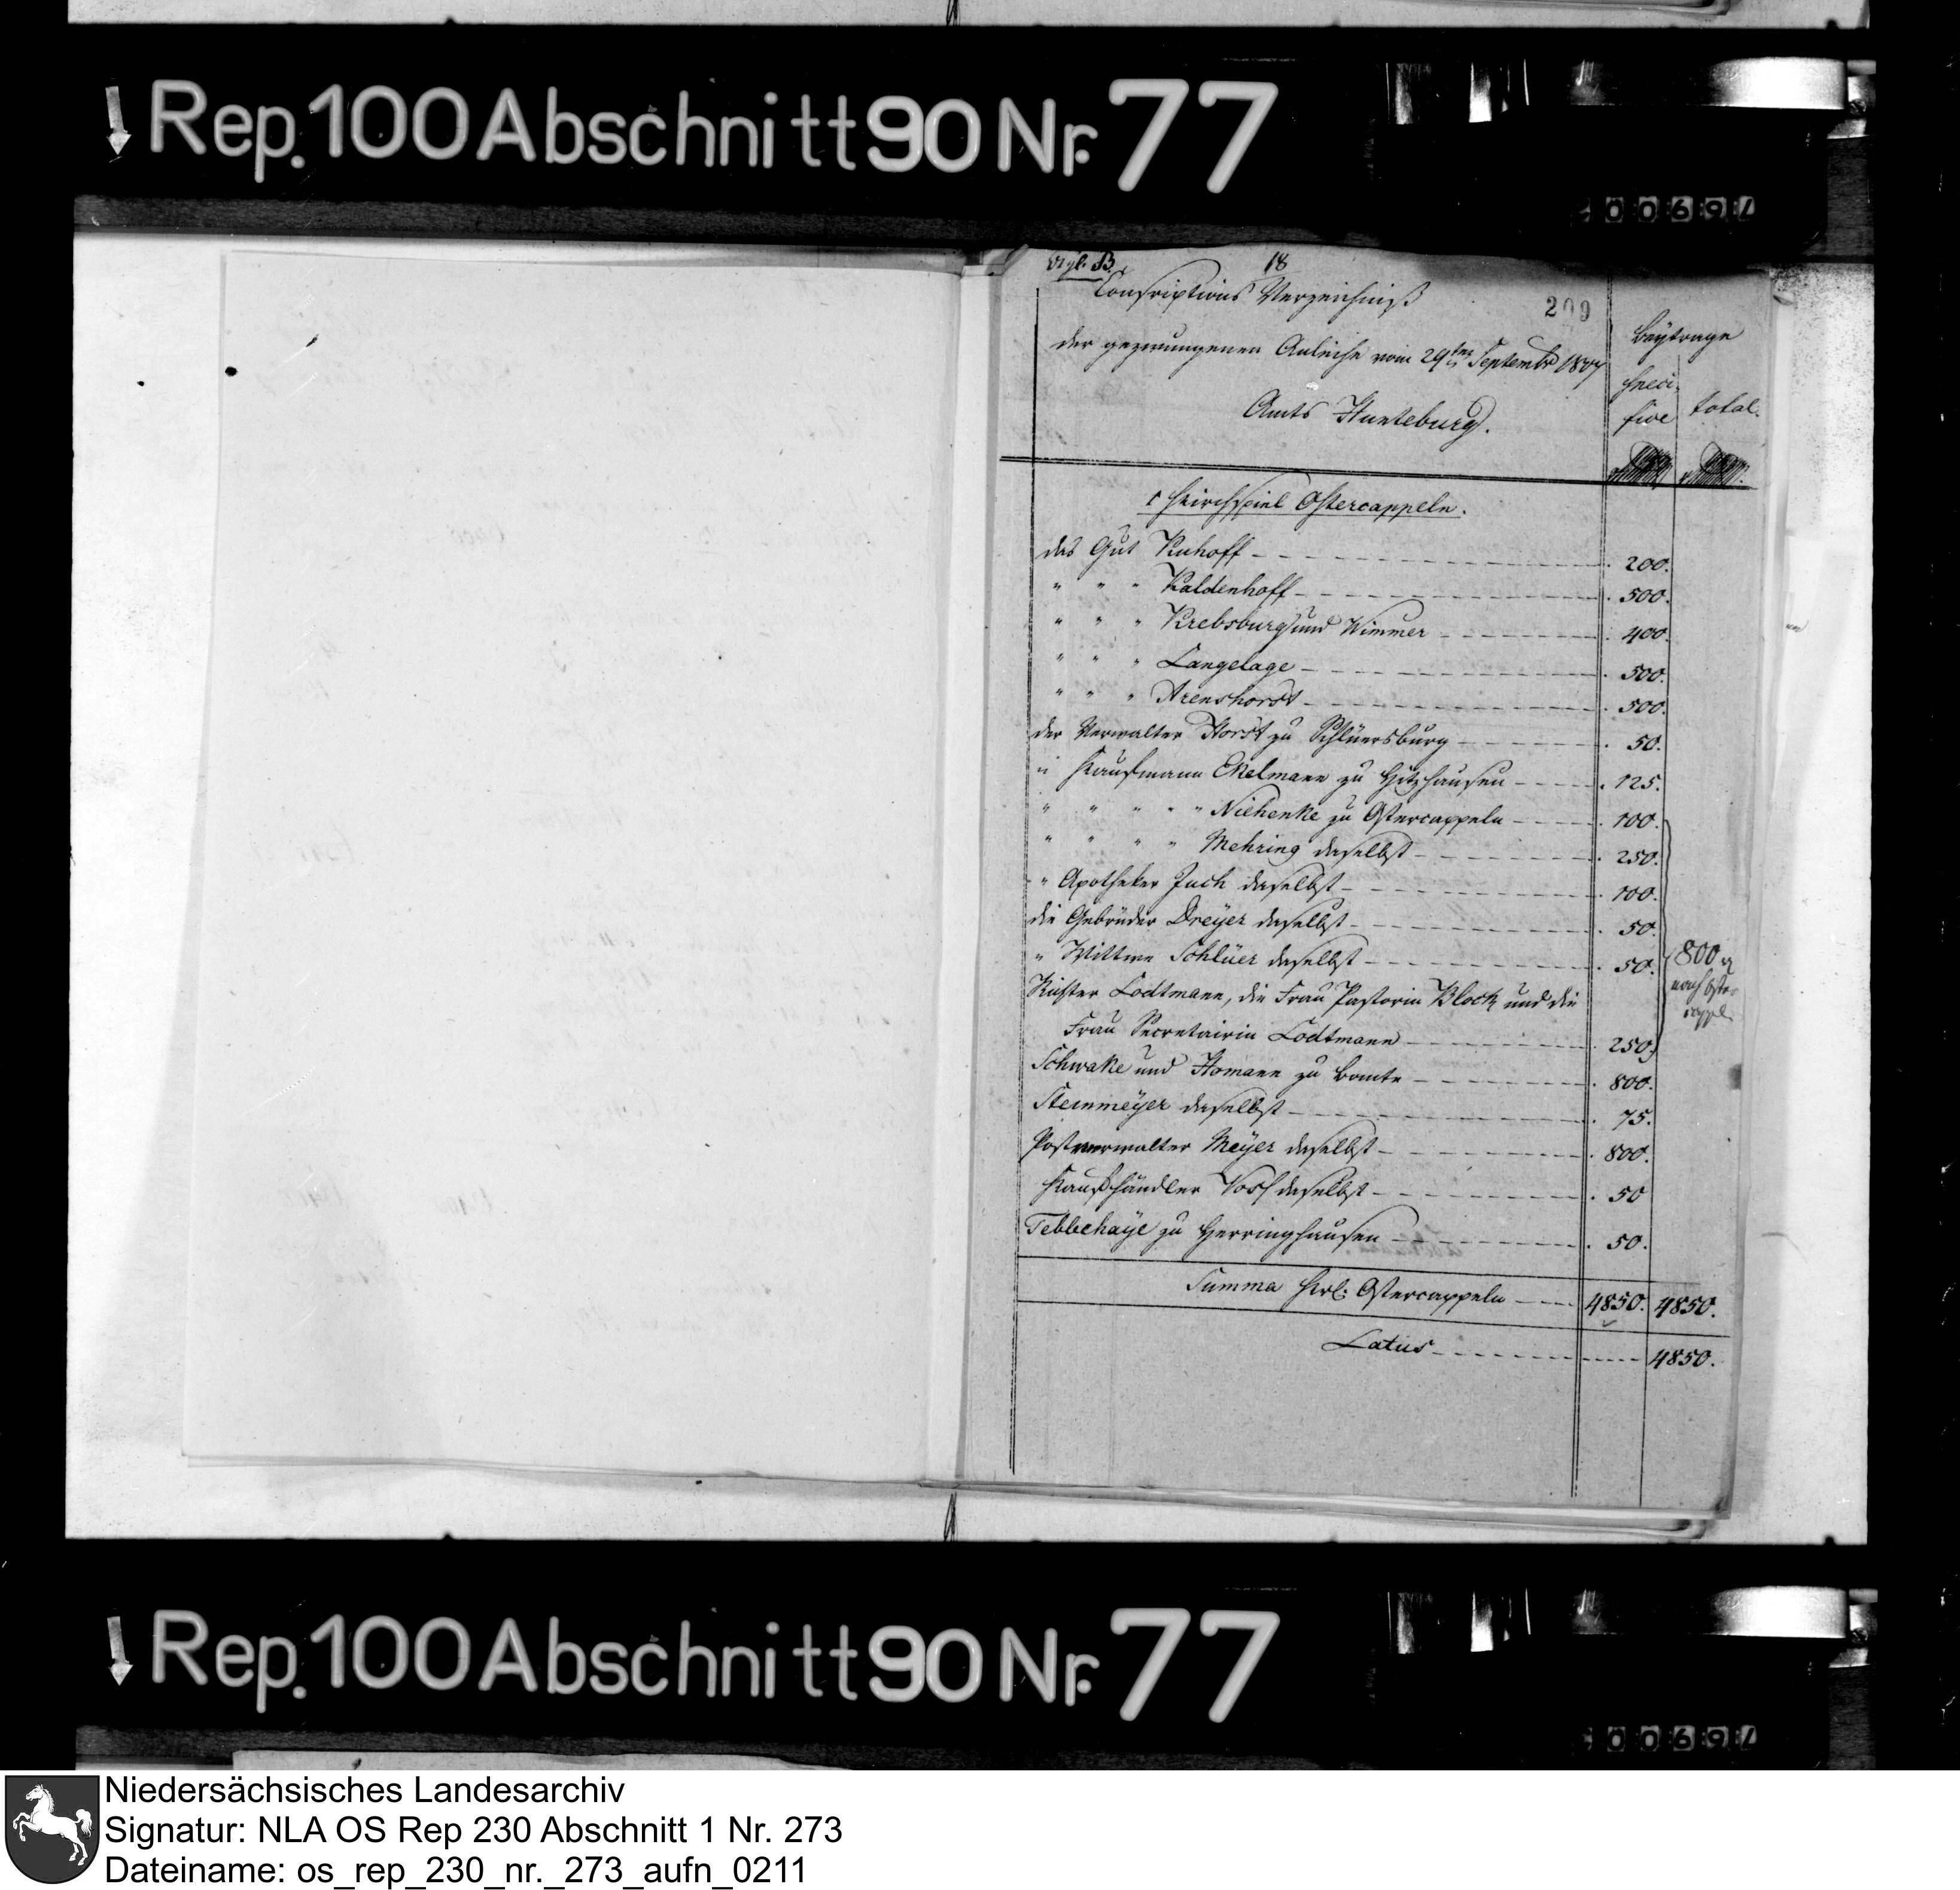 Rep. 100 Abschnitt 90 Nr. 77
18
Conscriptions Verzeichniß
209
der gezwungenen Anleihe vom 29ten Septembr 1807
Amts Hunteburg.
Beytrage
speci-
five
total.
Kirchspiel Ostercappeln.
das Gut Kuhoff 200.
" " " Kaldenhoff 500.
" " " Krebsburg und Wimmer 400.
" " " Langelage 500.
" " " Arenshorst 500.
der Verwalter Horst zu Schlüersburg 50.
" Kaufmann Ekelmann zu Hitzhausen 125.
" " " " " Niehenke zu Ostercappeln 100.
" " " " Mehring daselbst 250.
" Apotheker Juch daselbst 100.
die Gebrüder Dreÿer daselbst 50.
" Wittwe Schlüer daselbst 50.
800
nach Oster-
cappl.
Richter Lodtmann, die Frau Pastorin Block und die
Frau Secretairin Lodtmann 250.
Schwake und Homann zu Bomte 800.
Steinmeÿer daselbst 75.
Postverwalter Meÿer daselbst 800.
Kaufhändler Voß daselbst 50
Tebbehaÿe zu Herringhausen 50.
Summa Krl. Ostercappeln 4850. 4850.
Latus 4850.
Rep. 100 Abschnitt 90 Nr. 77
Niedersächsisches Landesarchiv
Signatur: NLA OS Rep 230 Abschnitt 1 Nr. 273
Dateiname: os_rep_230_nr._273_aufn_0211